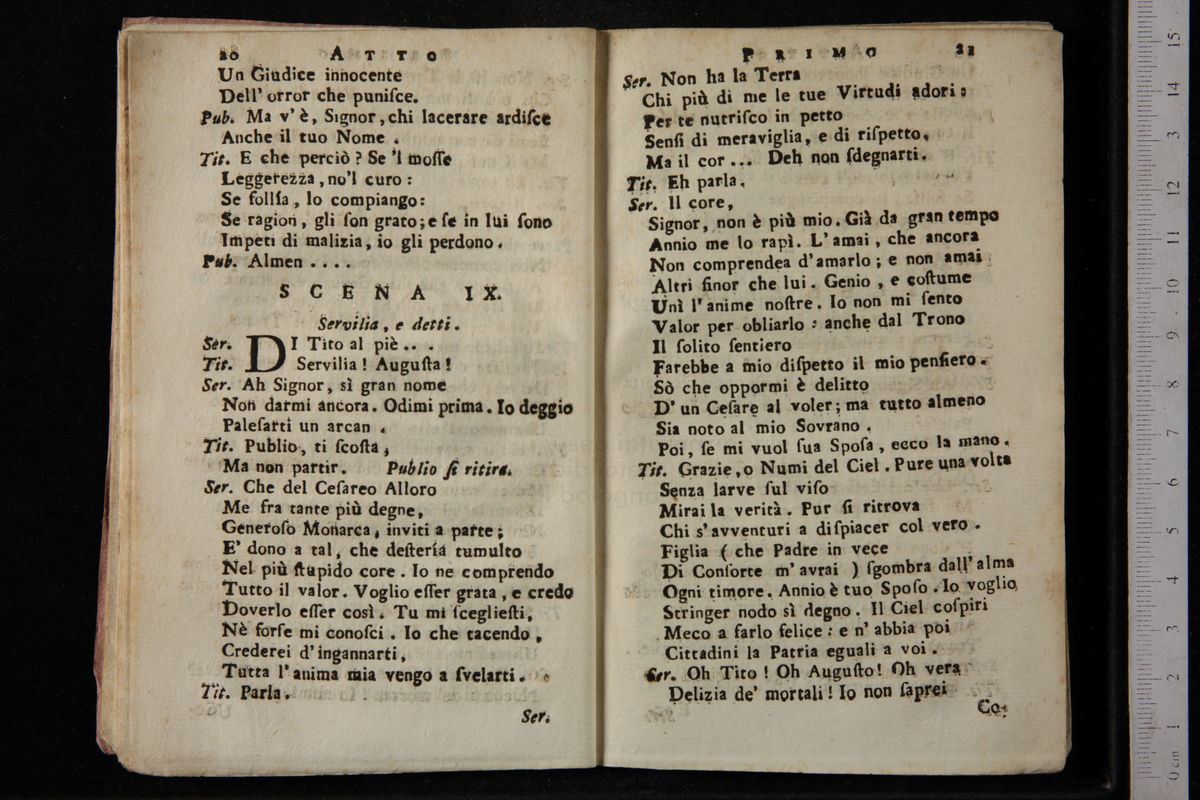 20 ATTO
Un Giudice innocente
Dell' orror che puniſce.
Pub. Ma v' è, Signor, chi lacerare ardiſce
Anche il tuo Nome.
Tit. E che perciò? Se 'l moſſe
Leggerezza, no'l curo:
Se follía, lo compiango:
Se ragion, gli ſon grato; e ſe in lui ſono
Impeti di malizia, io gli perdono.
Pub. Almen ....
SCENA IX.
Servilia, e detti.
Ser. DI Tito al piè...
Tit. Servilia! Auguſta!
Ser. Ah Signor, sì gran nome
Non darmi ancora. Odimi prima. Io deggio
Paleſarti un arcan.
Tit. Publio, ti ſcoſta,
Ma non partir. Publio ſi ritira.
Ser. Che del Ceſareo Alloro
Me fra tante più degne,
Generoſo Monarca, inviti a parte;
E' dono a tal, che deſtería tumulto
Nel più ſtupido core. Io ne comprendo
Tutto il valor. Voglio eſſer grata, e credo
Doverlo eſſer così. Tu mi ſceglieſti,
Nè forſe mi conoſci. Io che tacendo,
Crederei d'ingannarti,
Tutta l'anima mia vengo a ſvelarti.
Tit. Parla.
Ser.
PRIMO 21
Ser. Non ha la Terra
Chi più di me le tue Virtudi adori:
Per te nutriſco in petto
Senſi di meraviglia, e di riſpetto,
Ma il cor... Deh non ſdegnarti.
Tit. Eh parla.
Ser. Il core,
Signor, non è più mio. Già da gran tempo
Annio me lo rapì. L'amai, che ancora
Non comprendea d'amarlo; e non amai
Altri finor che lui. Genio, e coſtume
Unì l'anime noſtre. Io non mi ſento
Valor per obliarlo: anche dal Trono
Il ſolito ſentiero
Farebbe a mio diſpetto il mio penſiero.
Sò che oppormi è delitto
D'un Ceſare al voler; ma tutto almeno
Sia noto al mio Sovrano.
Poi, ſe mi vuol ſua Spoſa, ecco la mano.
Tit. Grazie, o Numi del Ciel. Pure una volta
Senza larve ſul viſo
Mirai la verità. Pur ſi ritrova
Chi s'avventuri a diſpiacer col vero.
Figlia (che Padre in vece
Di Conſorte m'avrai) ſgombra dall'alma
Ogni timore. Annio è tuo Spoſo. Io voglio
Stringer nodo sì degno. Il Ciel coſpiri
Meco a farlo felice: e n'abbia poi
Cittadini la Patria eguali a voi.
Ser. Oh Tito! Oh Auguſto! Oh vera
Delizia de' mortali! Io non ſaprei
Co-